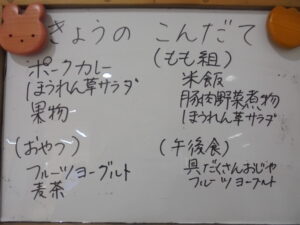 きょうの こんだて
ポークカレー
ほうれん草サラダ
果物
(おやつ)
フルーツヨーグルト
麦茶
(もも組)
米飯
豚肉野菜煮物
ほうれん草サラダ
(午後食)
具だくさんおじや
フルーツヨーグルト